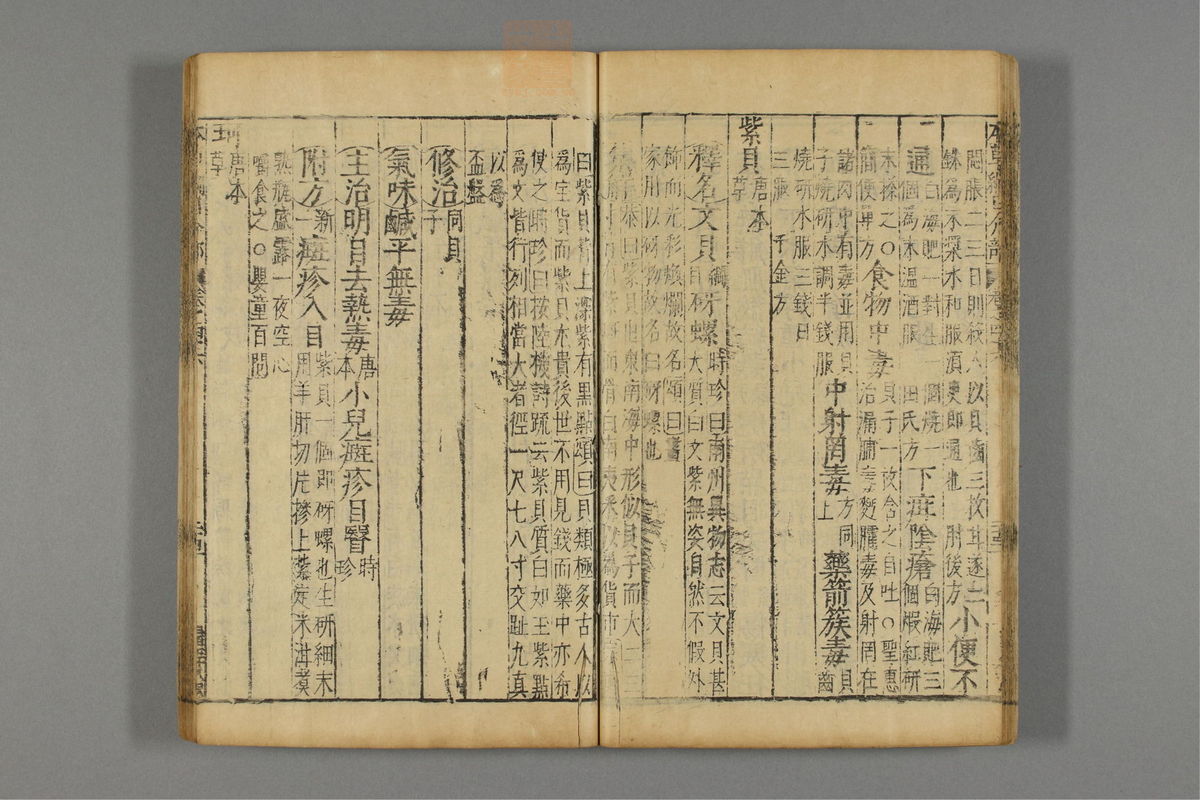 悶脹二三日則殺人以貝齒三枚甘遂二
銖爲末漿水和服須臾即通也 肘後方 小便不
通 白海𧵅一對生一個燒一
個爲末溫酒服 田氏方 下疳陰瘡 白海𧵅三
個煅紅研
末搽之〇
簡便單方 食物中毒 貝子一枚含之自吐〇聖惠
治漏脯毒麪臛毒及射罔在
諸肉中有毒並用貝
子燒研水調半錢服 中射罔毒 方同
上 藥箭簇毒 貝
齒
燒研水服三錢日
三服 千金方
紫貝 唐本
草
釋名 文貝 綱目 砑螺 時珍曰南州異物志云文貝甚
大質白文紫無姿自然不假外
飾而光彩煥爛故名頌曰畫
家用以砑物故名曰砑螺也
恭曰紫貝出東南海中形似貝子而大二三
曰紫貝背上深紫有黑點頌曰貝類極多古人以
爲寶貨而紫貝尤貴後世不用見錢而藥中亦希
使之時珍曰按陸機詩疏云紫貝質白如玉紫點
爲文皆行列相當大者徑一尺七八寸交趾九真
以爲
盃盤
修治 同貝
子
氣味鹹平無毒
主治明目去熱毒 唐
本 小兒疳疹目瞖 時
珍
附方 新
一 疳疹入目 紫貝一個即砑螺也生研細末
用羊肝切片摻上紮定米泔煮
熟瓶盛露一夜空心
嚼食之〇嬰童百問
珂 唐本
草